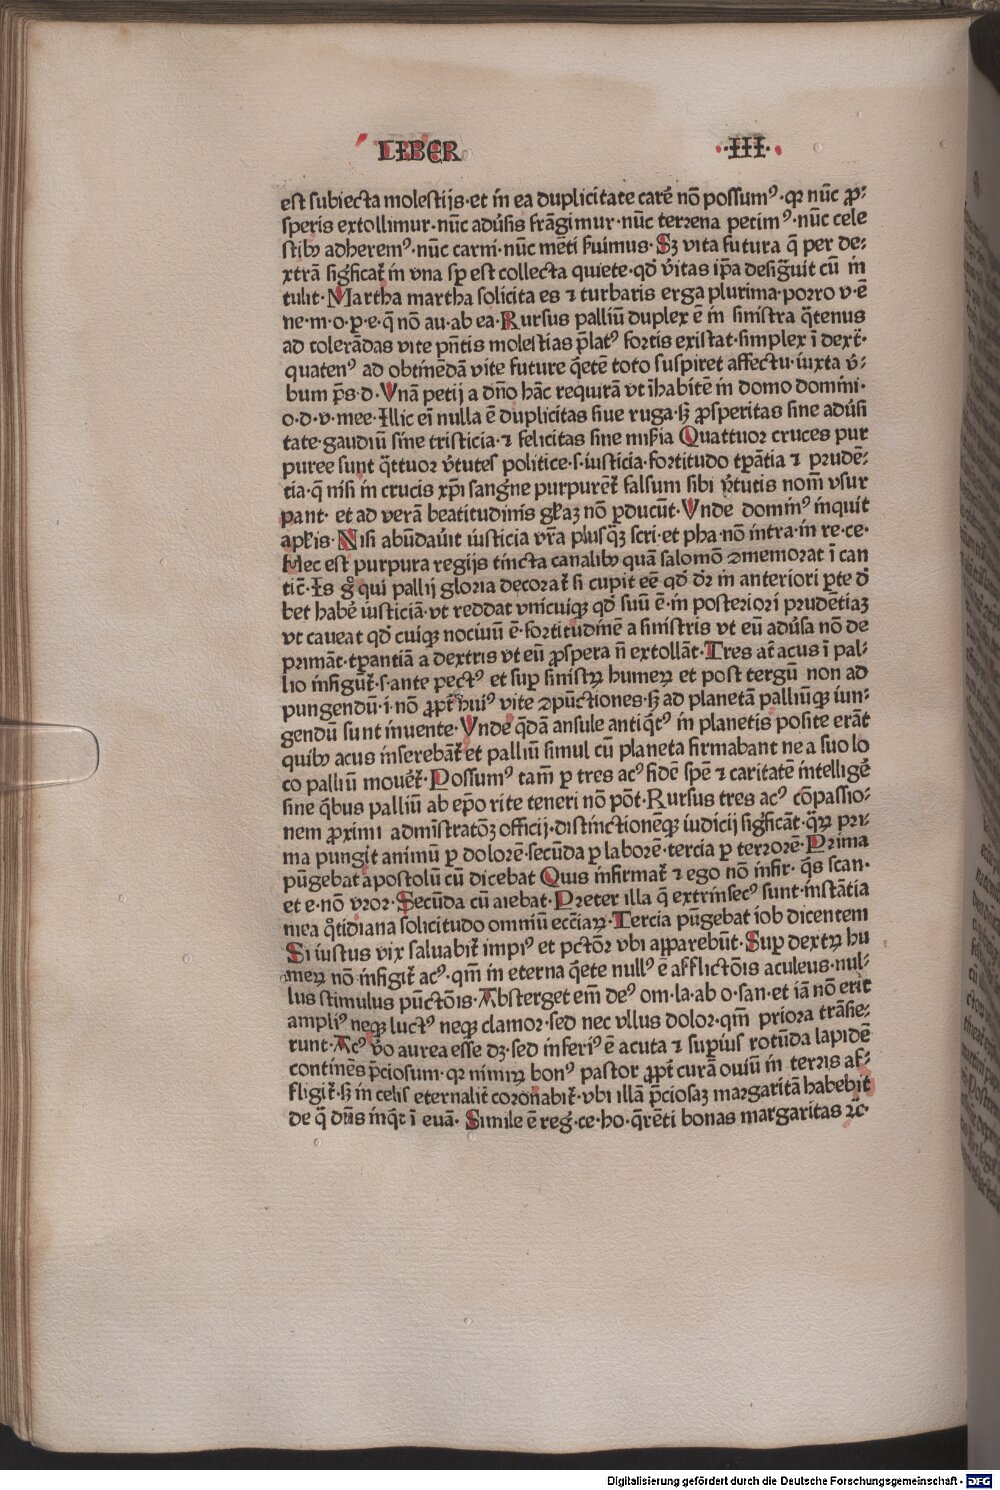 LIBER ·III·
est subiecta molestijs·et in ea duplicitate carē nō possumꝰ·qꝛ nūc ꝓ⸗
speris extollimur·nūc adūsis frāgimur·nūc terrena petimꝰ·nūc cele
stibꝫ adheremꝰ·nūc carni·nūc mēti fuimus·Sꝫ vita futura q̄ per de⸗
xtrā sigficat᷑ in vna sp̄ est collecta quiete·qd̄ v̄itas ip̄a desigūit cū in
tulit·Martha martha solicita es ⁊ turbaris erga plurima·porro v·ē
ne·m·o·p·e·q̄ nō au·ab ea·Rursus palliū duplex ē in sinistra q̄tenus
ad tolerādas vite pn̄tis molestias p̄latꝰ fortis existat·simplex ī dext᷑·
quatenꝰ ad obtinēdā vite future q̄etē toto suspiret affectu·iuxta v̄⸗
bum p̄s·d·Vnā petij a dn̄o hāc requirā vt īhabitē in domo domini·
o·d·v·mee·Illic ei nulla ē duplicitas siue ruga·sꝫ ꝓsperitas sine adūsi
tate·gaudiū sine tristicia·⁊ felicitas sine mis̄ia Quattuor cruces pur
puree sunt q̄ttuor v̄tutes politice·s·iusticia·fortitudo tꝑātia ⁊ prudē⸗
tia·q̄ nisi in crucis xp̄i sangne purpurēt᷑ falsum sibi v̄tutis nom̄ vsur
pant· et ad verā beatitudinis gl̄iaꝫ nō ꝑducūt·Vnde dominꝰ inquit
apl̄is·Nisi abūdaūit iusticia vr̄a plusqꝫ scri·et pha·nō intra·in re·ce·
Hec est purpura regijs tincta canalibꝫ quā salomō ꝯmemorat ī can
tic̄·Is g̊ qui pallij gloria decorat᷑ si cupit eē qd̄ dr̄ in anteriori ꝑte d̄
bet habē iusticiā·vt reddat vnicuiqꝫ qd̄ suū ē·in posteriori prudētiaꝫ
vt caueat qd̄ cuiqꝫ nociuū ē·fortitudinē a sinistris vt eū adūsa nō de
primāt·tꝑantiā a dextris vt eū ꝓspera n̄ extollāt·Tres at̄ acus ī pal⸗
lio infigūt᷑·s·ante pectꝰ et sup sinistꝝ humeꝝ et post tergū non ad
pungendū·i·nō ꝓpt᷑ huiꝰ vite ꝯpūctiones·sꝫ ad planetā palliūqꝫ iun⸗
gendū sunt inuente·Vnde q̄dā ansule antiq̄tꝰ in planetis posite erāt
quibꝫ acus inserebāt᷑ et palliū simul cū planeta firmabant ne a suo lo
co palliū mouēt᷑·Possumꝰ tam̄ ꝑ tres acꝰ fidē spē ⁊ caritatē intelligē
sine q̄bus palliū ab ep̄o rite teneri nō pōt·Rursus tres acꝰ cōpassio⸗
nem ꝓximi admīstratōꝫ officij·distinctionēqꝫ iudicij sigficāt·q̄ꝝ pri⸗
ma pungit animū ꝑ dolorē·secūda ꝑ laborē·tercia ꝑ terrorē·Prima
pūgebat apostolū cū dicebat Quis infirmat᷑ ⁊ ego nō infir· q̄s scan·
et e·nō vror·Secūda cū aiebat·Preter illa q̄ extrinsecꝰ sunt·instātia
mea q̄tidiana solicitudo omniū ecc̄iaꝝ·Tercia pūgebat iob dicentem
Si iustus vix saluabit᷑ impiꝰ et pctōr̄ vbi apparebūt·Sup dextꝝ hu
meꝝ nō infigit᷑ acꝰ·qm̄ in eterna q̄ete nullꝰ ē afflictōis aculeus·nul⸗
lus stimulus pūctōis·Absterget em̄ deꝰ om·la·ab o·san·et iā nō erit
ampliꝰ neqꝫ luctꝰ neqꝫ clamor·sed nec vllus dolor·qm̄ priora trāsie⸗
runt·Acꝰ v̄o aurea esse dꝫ·sed inferiꝰ ē acuta ⁊ superius rotūda lapidē
continēs p̄ciosum·qꝛ nimiꝝ bonꝰ pastor ꝓpt᷑ curā ouiū in terris af⸗
fligit᷑·sꝫ in celis eternalit᷑ coronabit᷑·vbi illā p̄ciosaꝫ margaritā habebit
de q̄ dn̄s inq̄t ī euā· Simile ē reg·ce·ho·q̄rēti bonas margaritas ⁊c·
Digitalisierung gefördert durch die Deutsche Forschungsgemeinschaft - DFG